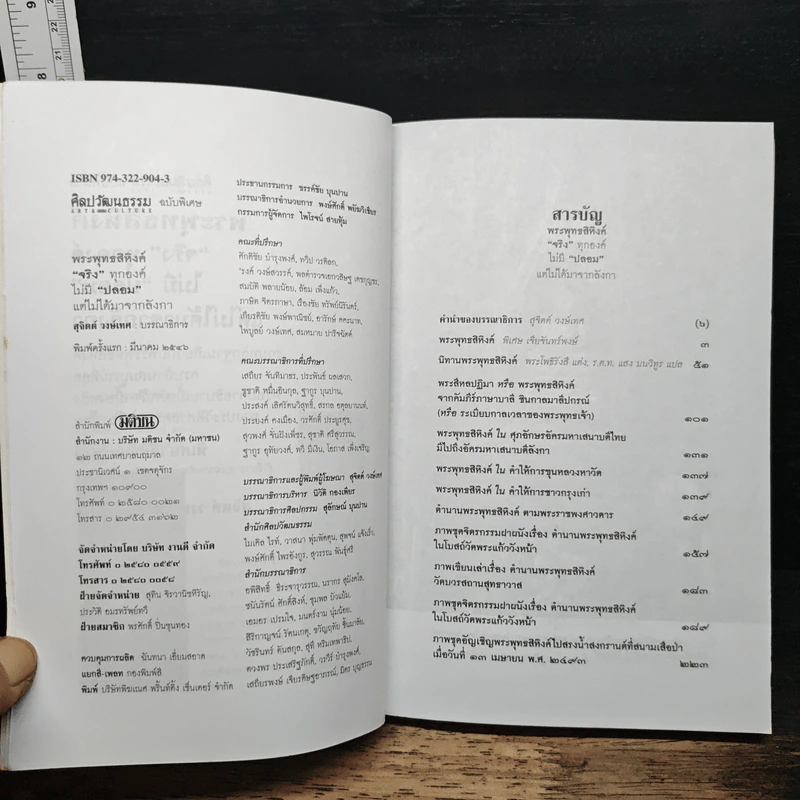 ISBN 974-322-904-3
ศิลปวัฒนธรรม ฉบับพิเศษ
พระพุทธสิหิงค์
“จริง” ทุกองค์
ไม่มี “ปลอม”
แต่ไม่ได้มาจากลังกา
สุจิตต์ วงษ์เทศ : บรรณาธิการ
พิมพ์ครั้งแรก : มีนาคม ๒๕๔๖
สำนักพิมพ์ มติชน
สำนักงาน : บริษัท มติชน จำกัด (มหาชน)
๑๒ ถนนเทศบาลนฤมาล
ประชานิเวศน์ ๑ เขตจตุจักร
กรุงเทพฯ ๑๐๙๐๐
โทรศัพท์ ๐ ๒๕๘๐ ๐๐๒๑
โทรสาร ๐ ๒๙๕๔ ๓๑๖๒
จัดจำหน่ายโดย บริษัท งานดี จำกัด
โทรศัพท์ ๐ ๒๕๘๐ ๐๕๕๙
โทรสาร ๐ ๒๕๘๐ ๐๐๕๘
ฝ่ายจัดจำหน่าย สุทิน จิรวานิชหิรัญ,
ประวัติ อมรทรัพย์ทวี
ฝ่ายสมาชิก พรศักดิ์ ปิ่นขุนทอง
ควบคุมการผลิต ฉันทนา เอี่ยมสอาด
แยกสี-เพลท กองพิมพ์สี
พิมพ์ บริษัทพิฆเณศ พริ้นท์ติ้ง เซ็นเตอร์ จำกัด
ประธานกรรมการ ขรรค์ชัย บุนปาน
บรรณาธิการอำนวยการ พงษ์ศักดิ์ พยัฆวิเชียร
กรรมการผู้จัดการ ไพโรจน์ สายทุ้ม
คณะที่ปรึกษา
ศักดิชัย บำรุงพงศ์, ทวีป วรดิลก,
'รงค์ วงษ์สวรรค์, พลตำรวจเอกวสิษฐ เดชกุญชร,
สมบัติ พลายน้อย, ล้อม เพ็งแก้ว,
ภาษิต จิตรภาษา, เรืองชัย ทรัพย์นิรันดร์,
เกียรติชัย พงษ์พาณิชย์, อารักษ์ คคะนาท,
ไพบูลย์ วงษ์เทศ, สมหมาย ปาริจฉัตต์
คณะบรรณาธิการที่ปรึกษา
เสถียร จันทิมาธร, ประพันธ์ ผลเสวก,
ชูชาติ หมื่นอินกุล, ฐากูร บุนปาน
ประสงค์ เลิศรัตนวิสุทธิ์, สรกล อดุลยานนท์,
ประยงค์ คงเมือง, วรศักดิ์ ประยูรศุข,
สุวพงศ์ จั่นฝังเพ็ชร, สุชาติ ศรีสุวรรณ,
ฐากูร อุทัยวงศ์, ทวี มีเงิน, โอภาส เพ็งเจริญ
บรรณาธิการและผู้พิมพ์ผู้โฆษณา สุจิตต์ วงษ์เทศ
บรรณาธิการบริหาร นิวัติ กองเพียร
บรรณาธิการศิลปกรรม สุลักษณ์ บุนปาน
สำนักศิลปวัฒนธรรม
ไมเคิล ไรท, วาสนา พุ่มพัตคุน, สุพจน์ แจ้งเร็ว,
พงษ์ศักดิ์ ไพรอังกูร, สุวรรณ พันธุ์ศรี
สำนักบรรณาธิการ
เสถียรพงษ์
สารบัญ
พระพุทธสิหิงค์
“จริง” ทุกองค์
ไม่มี “ปลอม”
แต่ไม่ได้มาจากลังกา
คำนำของบรรณาธิการ สุจิตต์ วงษ์เทศ (๖)
พระพุทธสิหิงค์ พิเศษ เจียจันทร์พงษ์ ๓
นิทานพระพุทธสิหิงค์ พระโพธิรังสี แต่ง, ร.ต.ท. แสง มนวิทูร แปล ๕๑
พระสีหลปฏิมา หรือ พระพุทธสิหิงค์
จากคัมภีร์ภาษาบาลี ชินกาลมาลีปกรณ์
(หรือ ระเบียบกาลเวลาของพระพุทธเจ้า) ๑๐๑
พระพุทธสิหิงค์ ใน ศุภอักษรอัครมหาเสนาบดีไทย
มีไปถึงอัครมหาเสนาบดีลังกา ๑๓๑
พระพุทธสิหิงค์ ใน คำให้การขุนหลวงหาวัด ๑๓๗
พระพุทธสิหิงค์ ใน คำให้การชาวกรุงเก่า ๑๓๙
ตำนานพระพุทธสิหิงค์ ตามพระราชพงศาวดาร ๑๔๙
ภาพชุดจิตรกรรมฝาผนังเรื่อง ตำนานพระพุทธสิหิงค์
ในโบสถ์วัดพระแก้ววังหน้า ๑๕๗
ภาพเขียนเล่าเรื่อง ตำนานพระพุทธสิหิงค์
วัดบวรสถานสุทธาวาส ๑๘๓
ภาพชุดจิตรกรรมฝาผนังเรื่อง ตำนานพระพุทธสิหิงค์
ในโบสถ์วัดพระแก้ววังหน้า ๑๘๙
ภาพชุดอัญเชิญพระพุทธสิหิงค์ไปสรงน้ำสงกรานต์ที่สนามเสือป่า
เมื่อวันที่ ๑๓ เมษายน พ.ศ. ๒๔๙๓ ๒๒๓